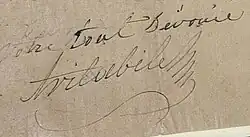 Votre tout Dévoué
Avitabile